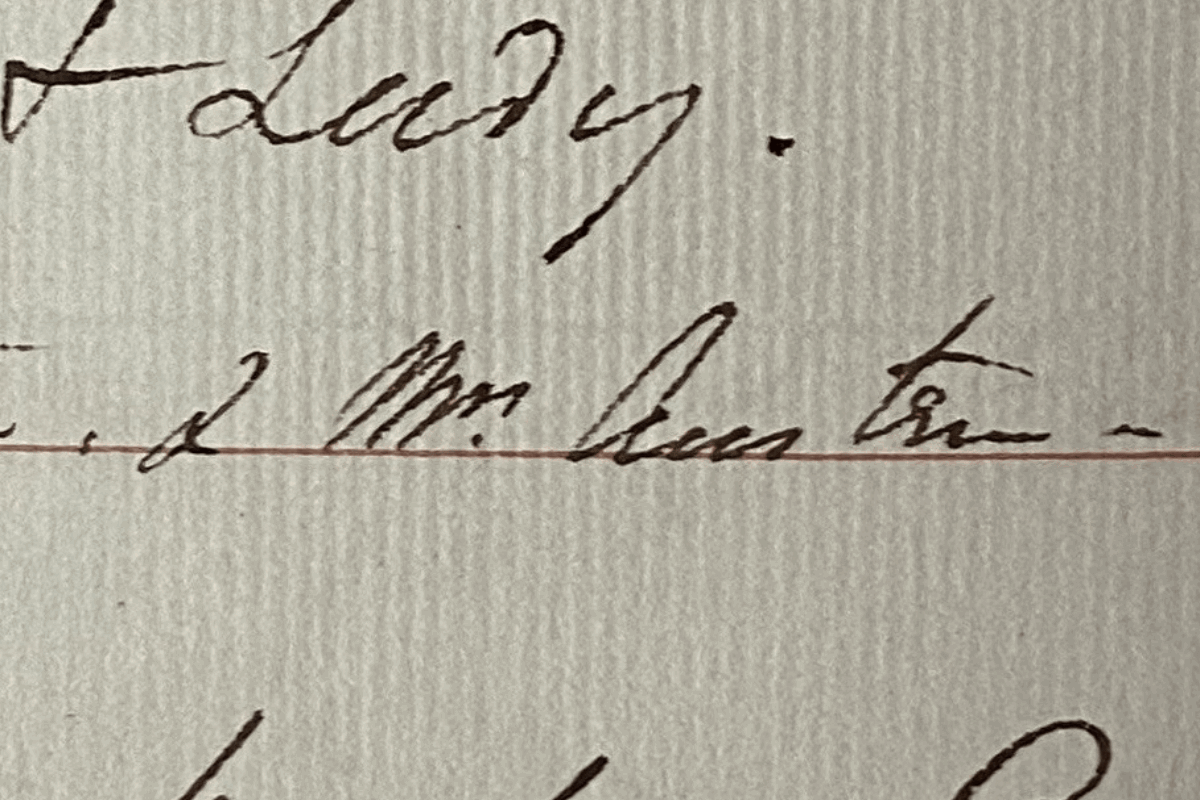 & Lady.
. & Mrs. Austen -